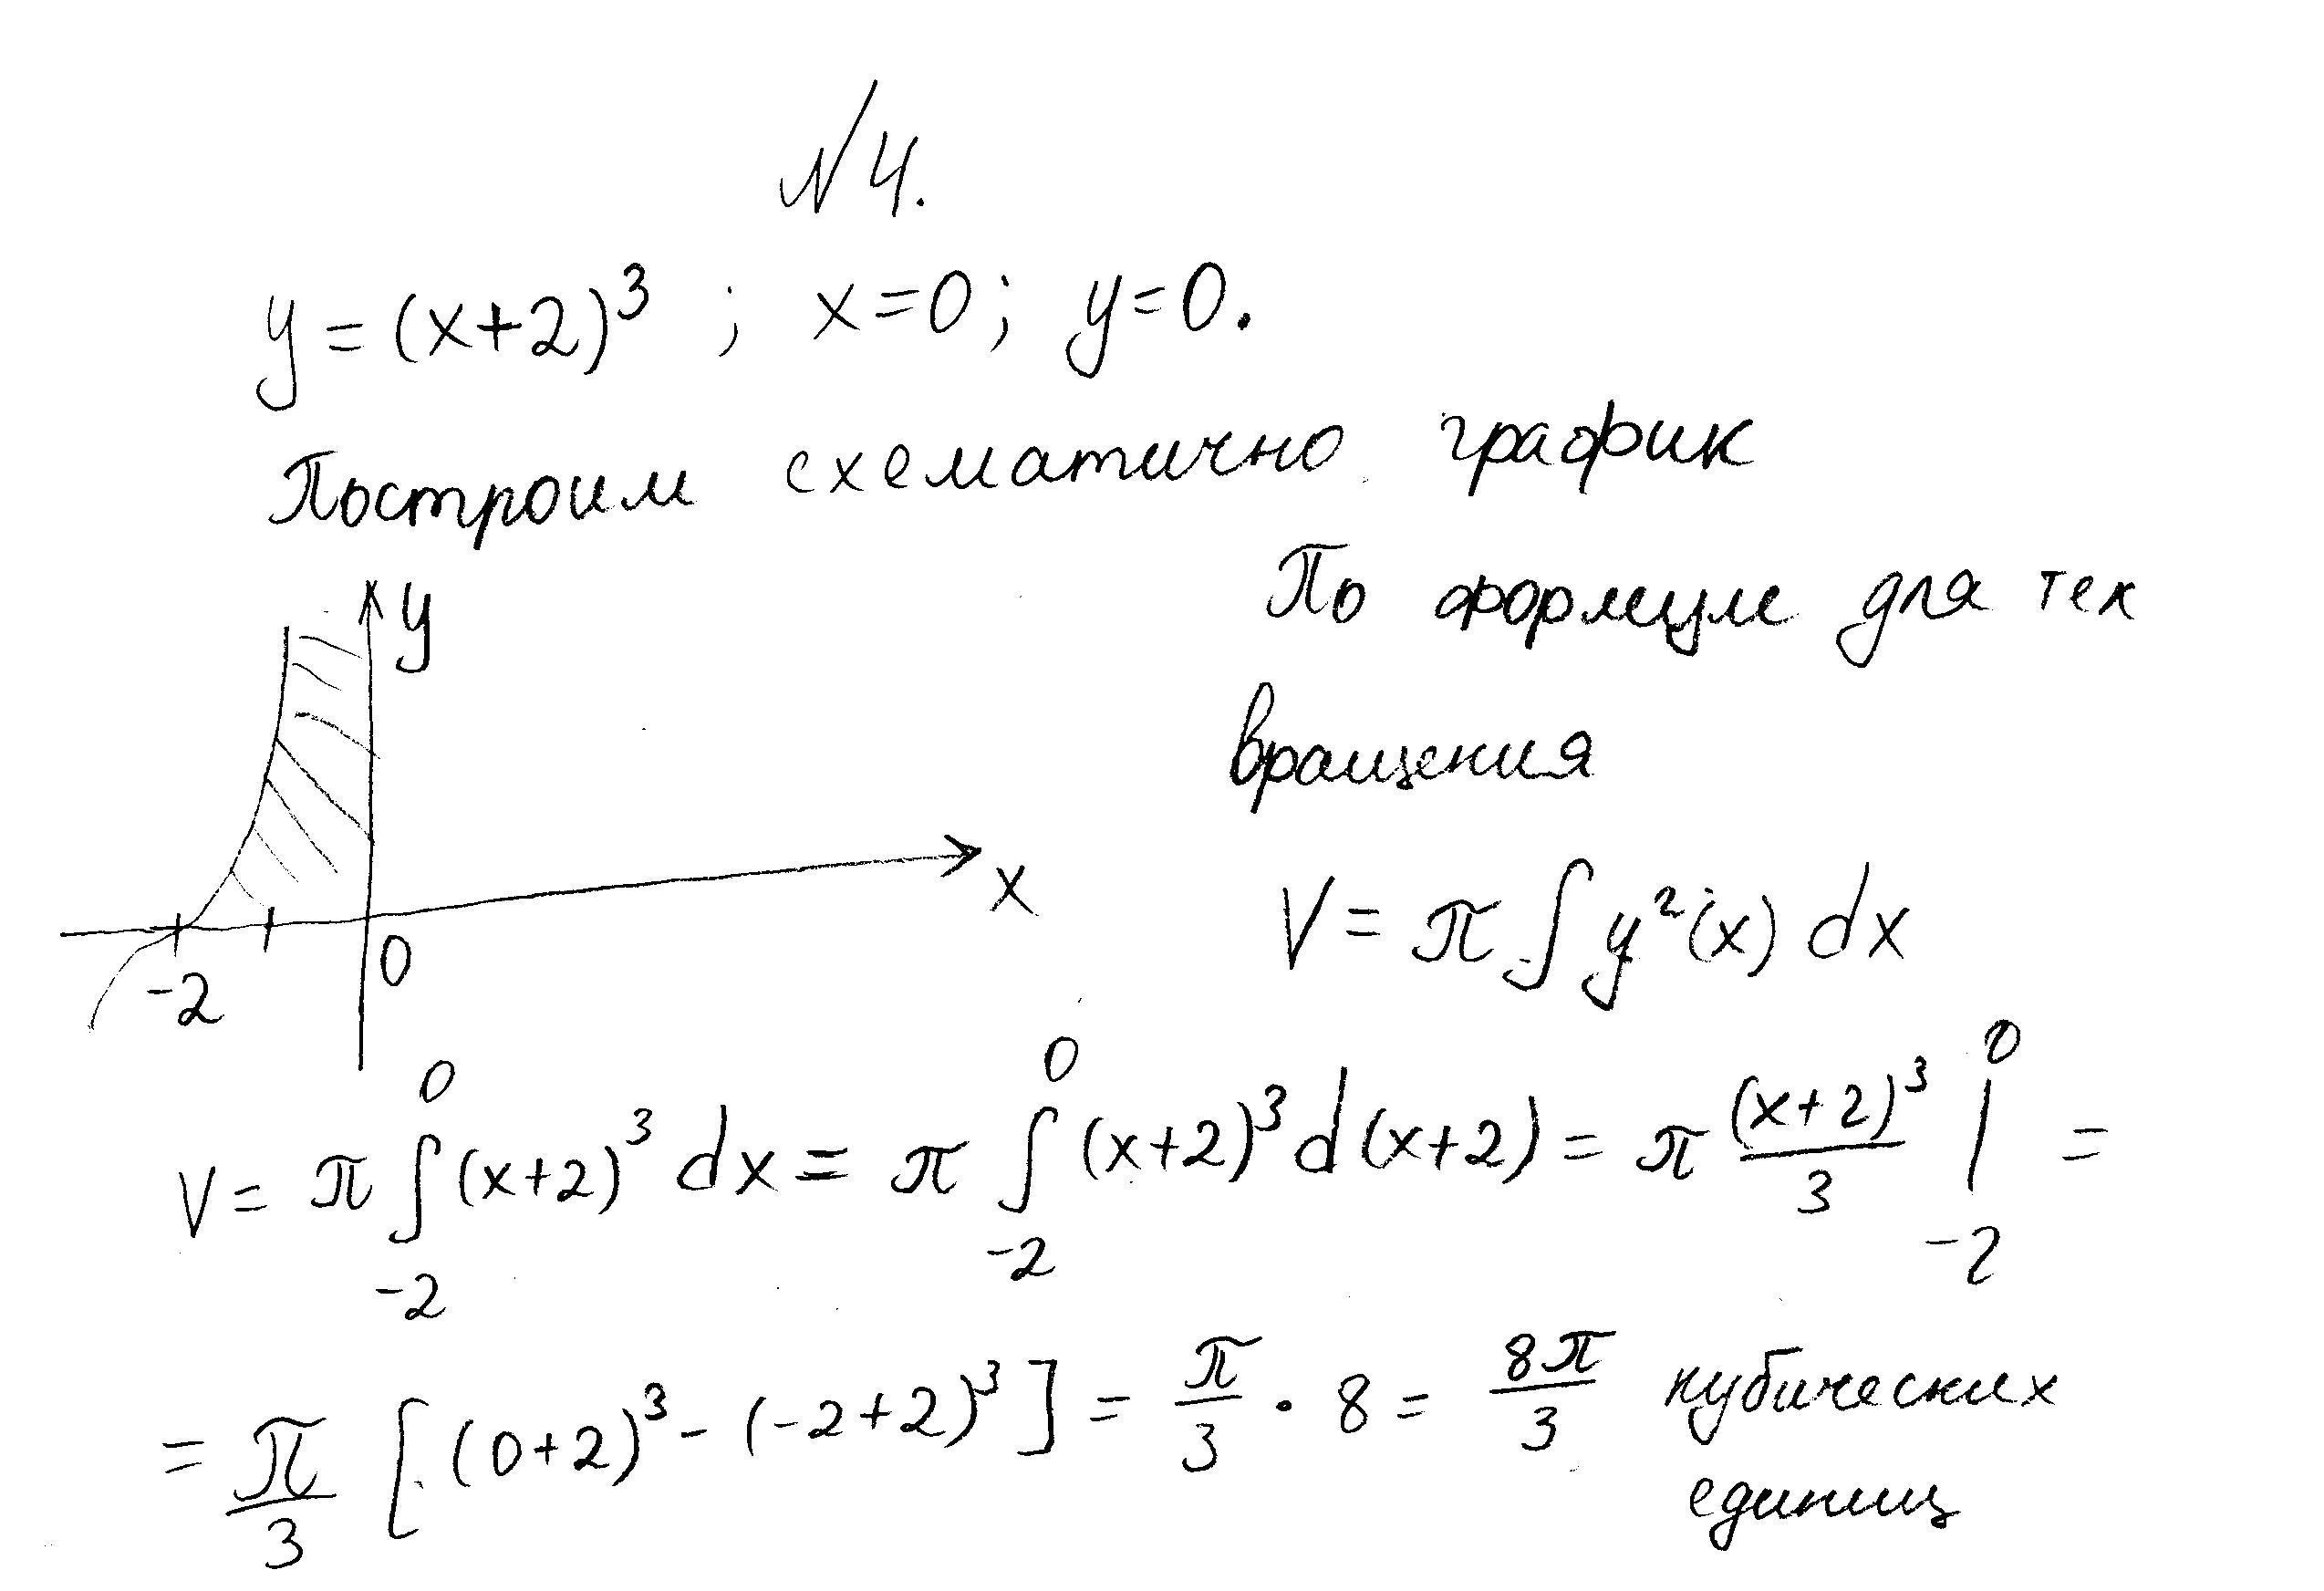 №4.
y = (x+2)³ ; x=0; y=0.
Построим схематично график
По формуле для тех
вращения
y
x
0
-2
V = π ∫ y²(x) dx
V = π ∫₋₂⁰ (x+2)³ dx = π ∫₋₂⁰ (x+2)³ d(x+2) = π (x+2)³/3 |₋₂⁰ =
= π/3 [(0+2)³ - (-2+2)³] = π/3 · 8 = 8π/3 кубических
единиц